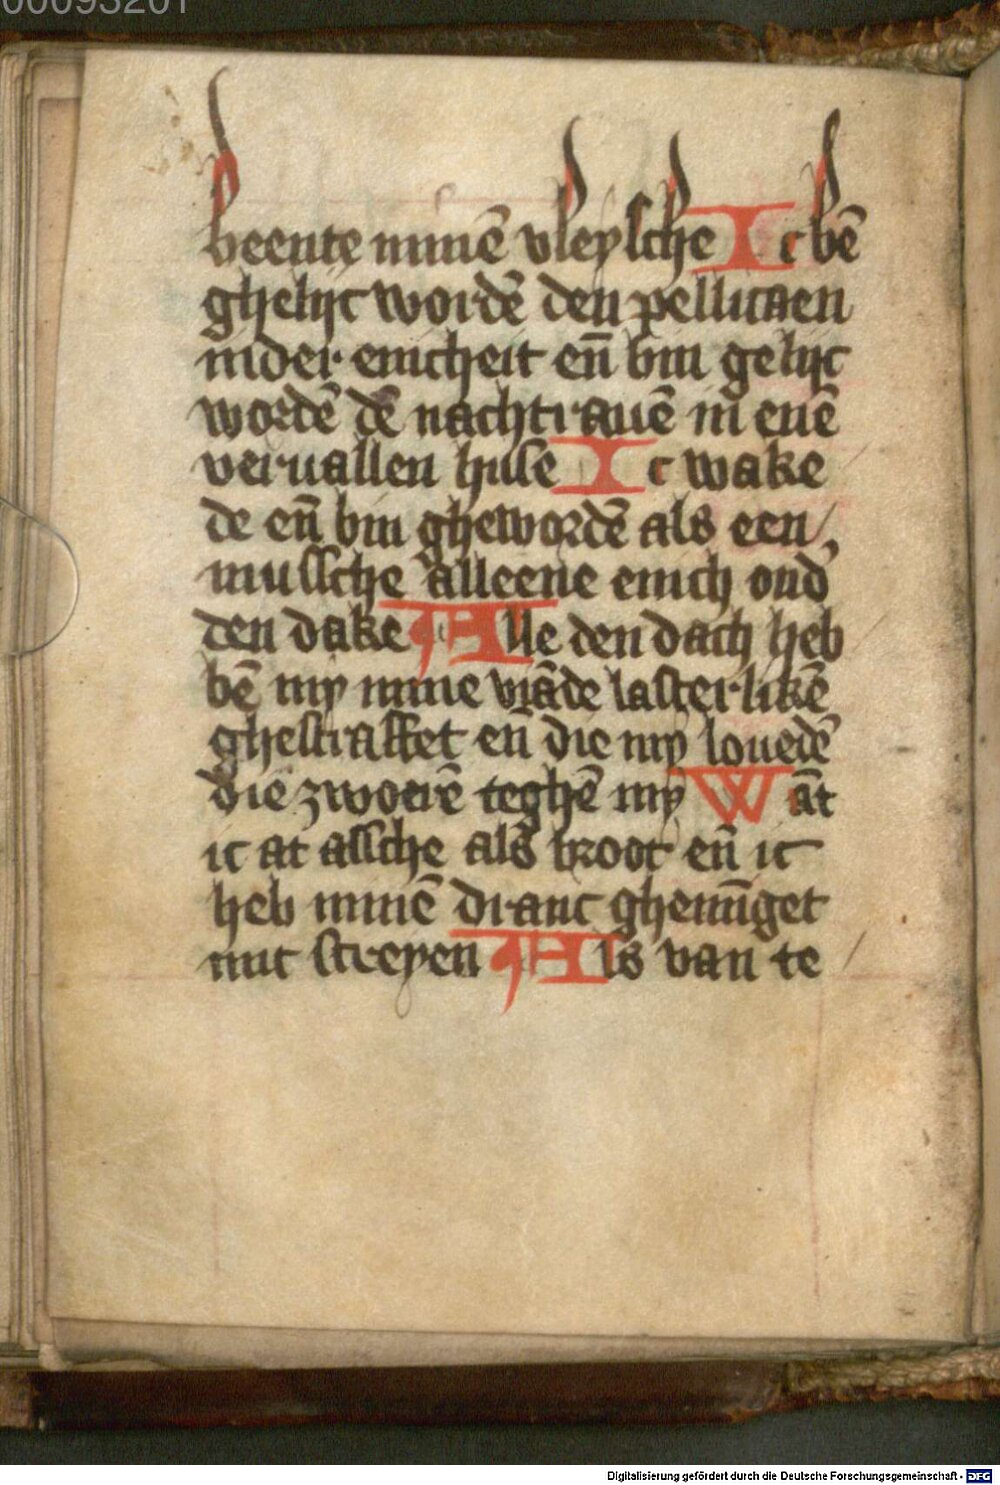 00093201
beente minē vleysche Ic bē
ghelijc wordē den pellicaen
inder enicheit en̄ bin gelijc
wordē dē nachtrauē in enē
veruallen huse Ic wake
de en̄ bin ghewordē als een
mussche alleene enich ond'
den dake Alle den dach heb
bē my mine viāde lasterlikē
ghestraffet en̄ die my louedē
die zwoerē teghē my Wāt
ic at assche als broot en̄ ic
heb minē dranc ghemīget
mit screyen Als van te
Digitalisierung gefördert durch die Deutsche Forschungsgemeinschaft - DFG